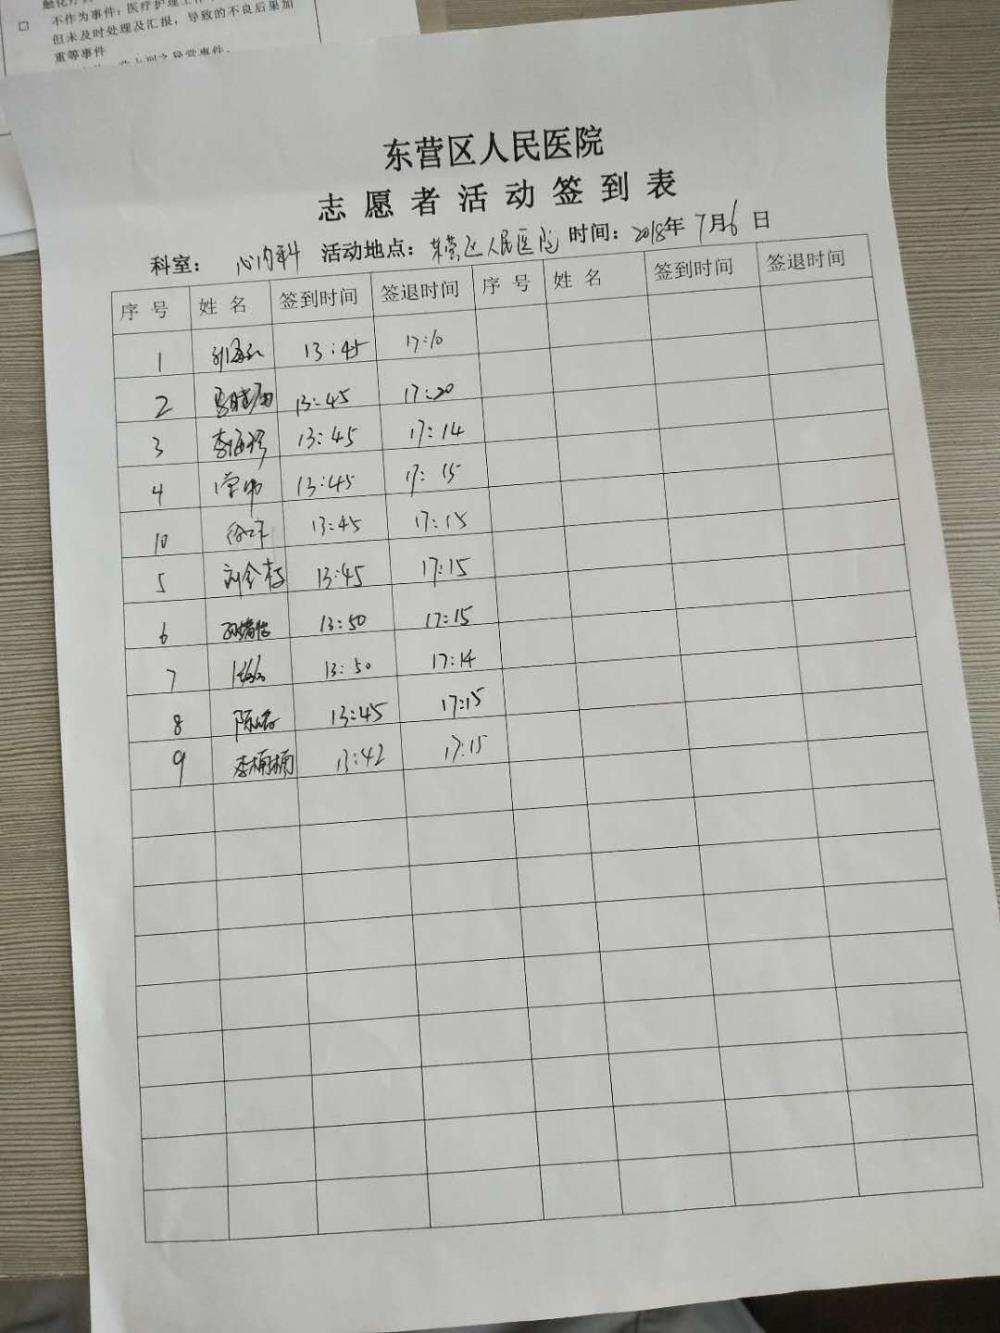 不作为事件：医疗护理工作
但未及时处理及汇报，导致的不良后果加
重等事件
东营区人民医院
志愿者活动签到表
科室： 心内科 活动地点：东营区人民医院 时间：2018年 7月6日
序号 姓名 签到时间 签退时间 序号 姓名 签到时间 签退时间
1 13:45 17:10
2 13:45 17:20
3 13:45 17:14
4 13:45 17:15
10 13:45 17:15
5 13:45 17:15
6 13:50 17:15
7 13:50 17:14
8 13:45 17:15
9 李楠楠 13:42 17:15